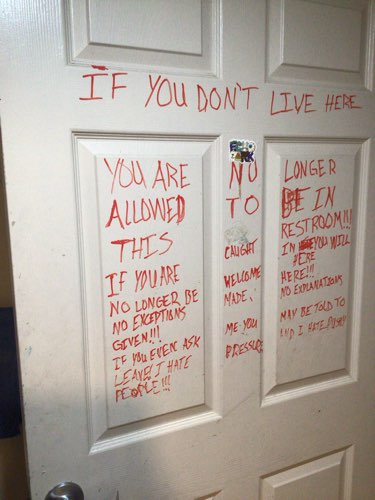 IF YOU DON'T LIVE HERE
YOU ARE NO LONGER
ALLOWED TO BE IN
THIS RESTROOM!!!
IF YOU ARE CAUGHT IN HERE YOU WILL
NO LONGER BE WELCOME HERE!!!
NO EXCEPTIONS MADE, NO EXPLANATIONS
GIVEN!!!
IF YOU EVEN ASK ME YOU MAY BE TOLD TO
LEAVE! I HATE PRESSURE AND I HATE PUSHY
PEOPLE!!!